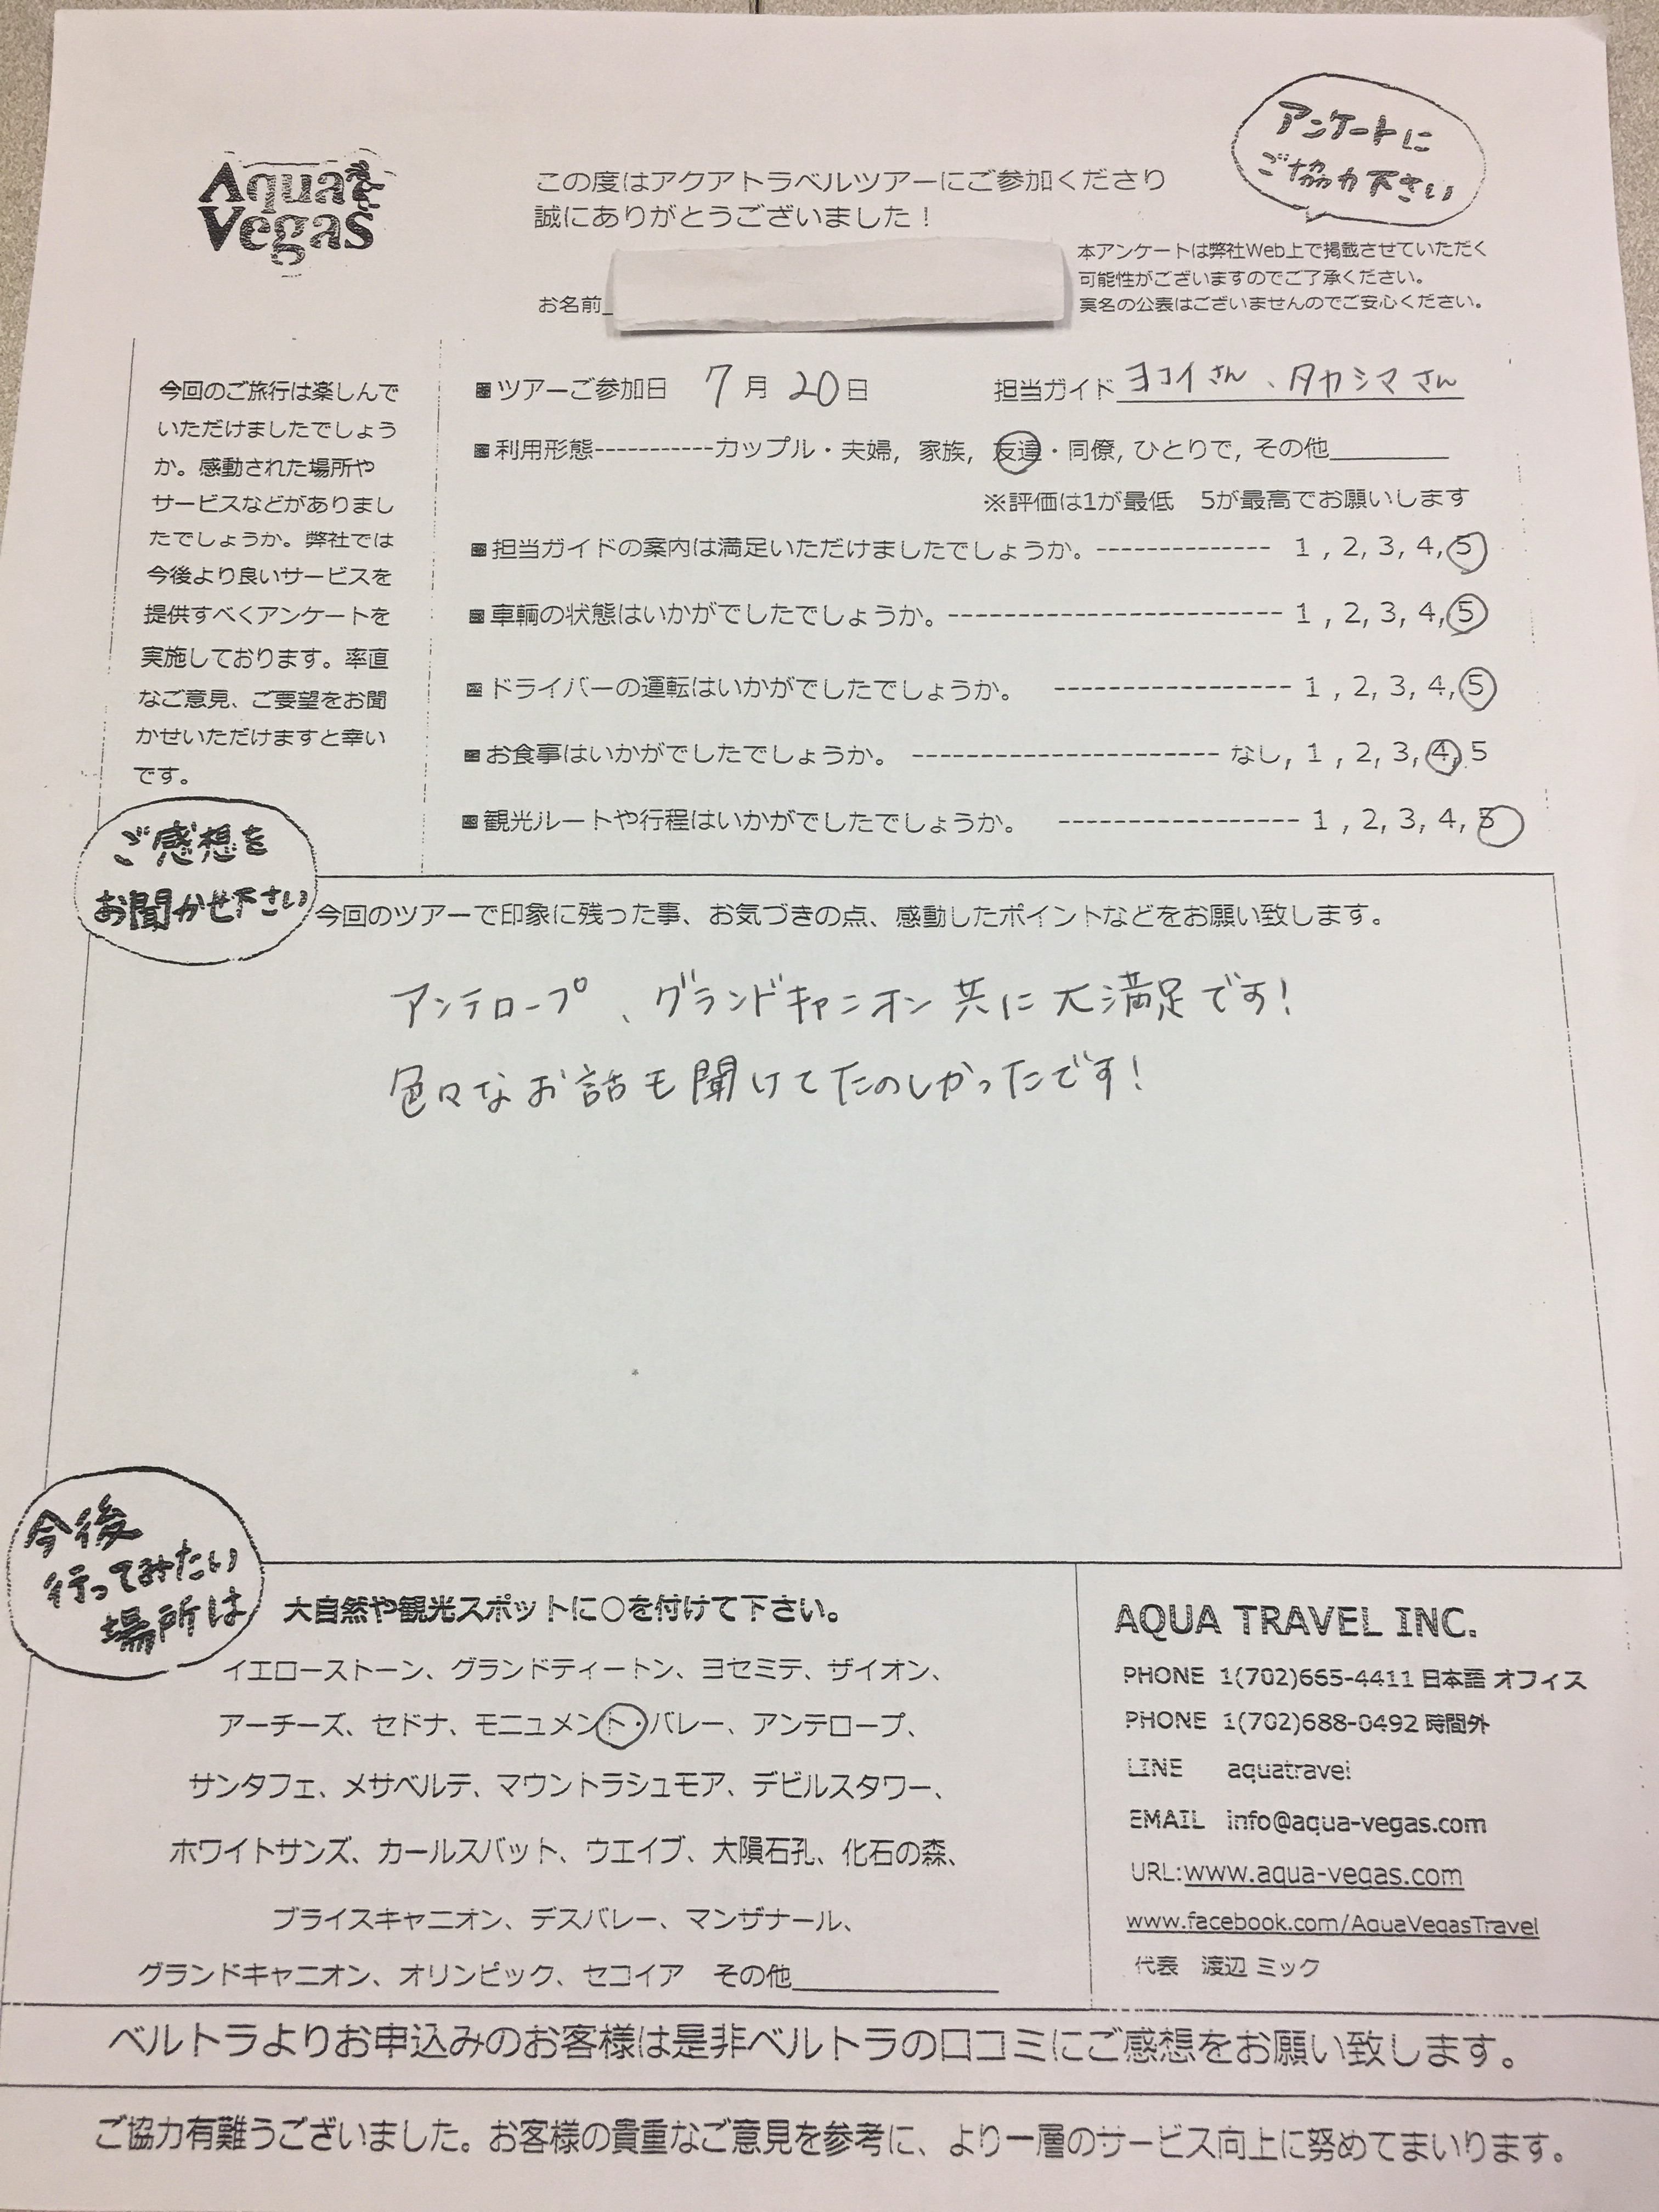 Aqua
Vegas
この度はアクアトラベルツアーにご参加くださり
誠にありがとうございました！
アンケートに
ご協力下さい
お名前
本アンケートは弊社Web上で掲載させていただく
可能性がございますのでご了承ください。
実名の公表はございませんのでご安心ください。
今回のご旅行は楽しんで
いただけましたでしょう
か。感動された場所や
サービスなどがありまし
たでしょうか。弊社では
今後より良いサービスを
提供すべくアンケートを
実施しております。率直
なご意見、ご要望をお聞
かせいただけますと幸い
です。
■ツアーご参加日 7月20日 担当ガイド ヨコイさん、タカシマさん
■利用形態-----------カップル・夫婦, 家族, 友達・同僚, ひとりで, その他________
※評価は1が最低 5が最高でお願いします
■担当ガイドの案内は満足いただけましたでしょうか。------------- 1 , 2, 3, 4, 5
■車輌の状態はいかがでしたでしょうか。------------------------- 1 , 2, 3, 4, 5
■ドライバーの運転はいかがでしたでしょうか。 ------------------ 1 , 2, 3, 4, 5
■お食事はいかがでしたでしょうか。 ----------------------- なし, 1 , 2, 3, 4, 5
■観光ルートや行程はいかがでしたでしょうか。 ------------------ 1 , 2, 3, 4, 5
ご感想を
お聞かせ下さい
今回のツアーで印象に残った事、お気づきの点、感動したポイントなどをお願い致します。
アンテロープ、グランドキャニオン共に大満足です！
色々なお話も聞けてたのしかったです！
今後
行ってみたい
場所は
大自然や観光スポットに○を付けて下さい。
イエローストーン、グランドティートン、ヨセミテ、ザイオン、
アーチーズ、セドナ、モニュメント・バレー、アンテロープ、
サンタフェ、メサベルテ、マウントラシュモア、デビルスタワー、
ホワイトサンズ、カールスバット、ウエイブ、大隕石孔、化石の森、
ブライスキャニオン、デスバレー、マンザナール、
グランドキャニオン、オリンピック、セコイア その他______________
AQUA TRAVEL INC.
PHONE 1(702)665-4411 日本語 オフィス
PHONE 1(702)688-0492 時間外
LINE aquatravel
EMAIL info@aqua-vegas.com
URL:www.aqua-vegas.com
www.facebook.com/AquaVegasTravel
代表 渡辺 ミック
ベルトラよりお申込みのお客様は是非ベルトラの口コミにご感想をお願い致します。
ご協力有難うございました。お客様の貴重なご意見を参考に、より一層のサービス向上に努めてまいります。